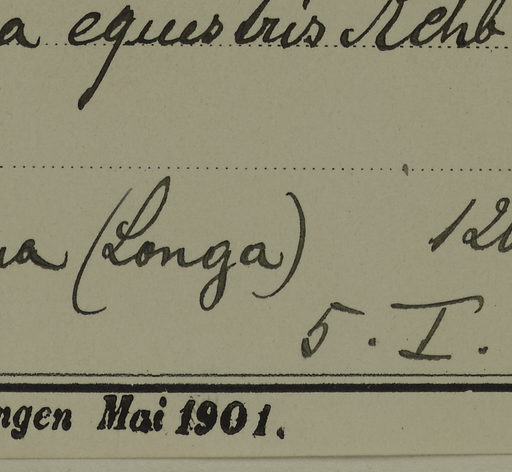 a equestris Rchb
(Longa) 12
5. I.
ngen Mai 1901.